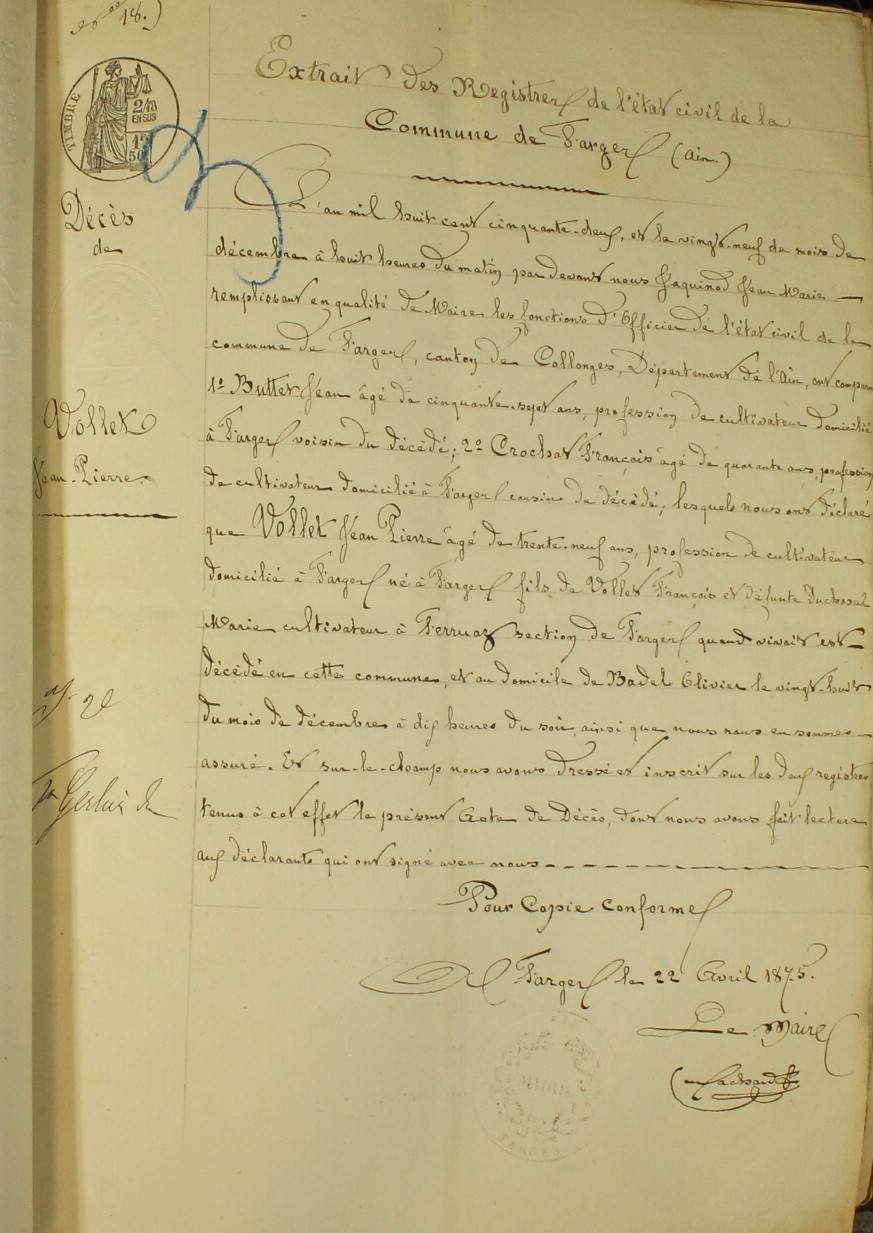 18.)
TIMBRE
2/10
EN SUS
1F
50
Extrait des Registres de l'état civil de la
Commune de Farges (Ain)
Décès
de
Vollet
Jean-Pierre.
L'an mil huit cent cinquante-deux, et le vingt-neuf du mois de
décembre à huit heures du matin par devant nous Jaquinod Jean Marie —
remplissant en qualité de Maire les fonctions d'Officier de l'état civil de la
commune de Farges, canton de Collonges, Département de l'Ain, ont comparu
1º Buttet Jean âgé de cinquante-sept ans, profession de cultivateur domicilié
à Farges voisin du décédé; 2º Crochat François âgé de quarante ans, profession
de cultivateur domicilié à Farges cousin du décédé; lesquels nous ont déclaré
que Vollet Jean Pierre âgé de trente-neuf ans, profession de cultivateur
domicilié à Farges né à Farges fils de Vollet François et défunte Duchosal
Marie cultivateur à Ferruaz section de Farges quand vivait est —
décédé en cette commune, et au domicile de Badel Olivier le vingt-huit
du mois de décembre à dix heures du soir, ainsi que nous nous en sommes —
assuré. Et sur-le-champ nous avons dressé et inscrit sur les deux registres
tenus à cet effet le présent Acte de Décès, dont nous avons fait lecture
aux déclarants qui ont signé avec nous — — — — — — — —
Pour Copie conforme
A Farges le 22 Avril 1875.
Le Maire